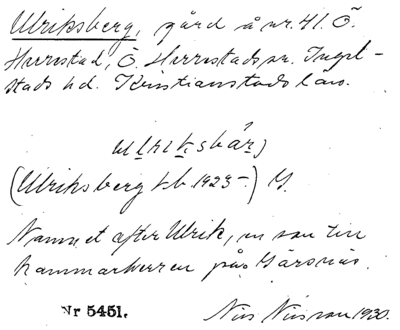 Ulriksberg, gård å nr. 41. Ö.
Herrestad, Ö. Herrestads sn. Ingel-
stads hd. Kristianstads län.
ulriksbärj
(Ulriksberg kb. 1923-) G.
Namnet efter Ulrik, en son till
kammarherren på Gärsnäs.
Nr 5451.
Nils Nilsson 1930.